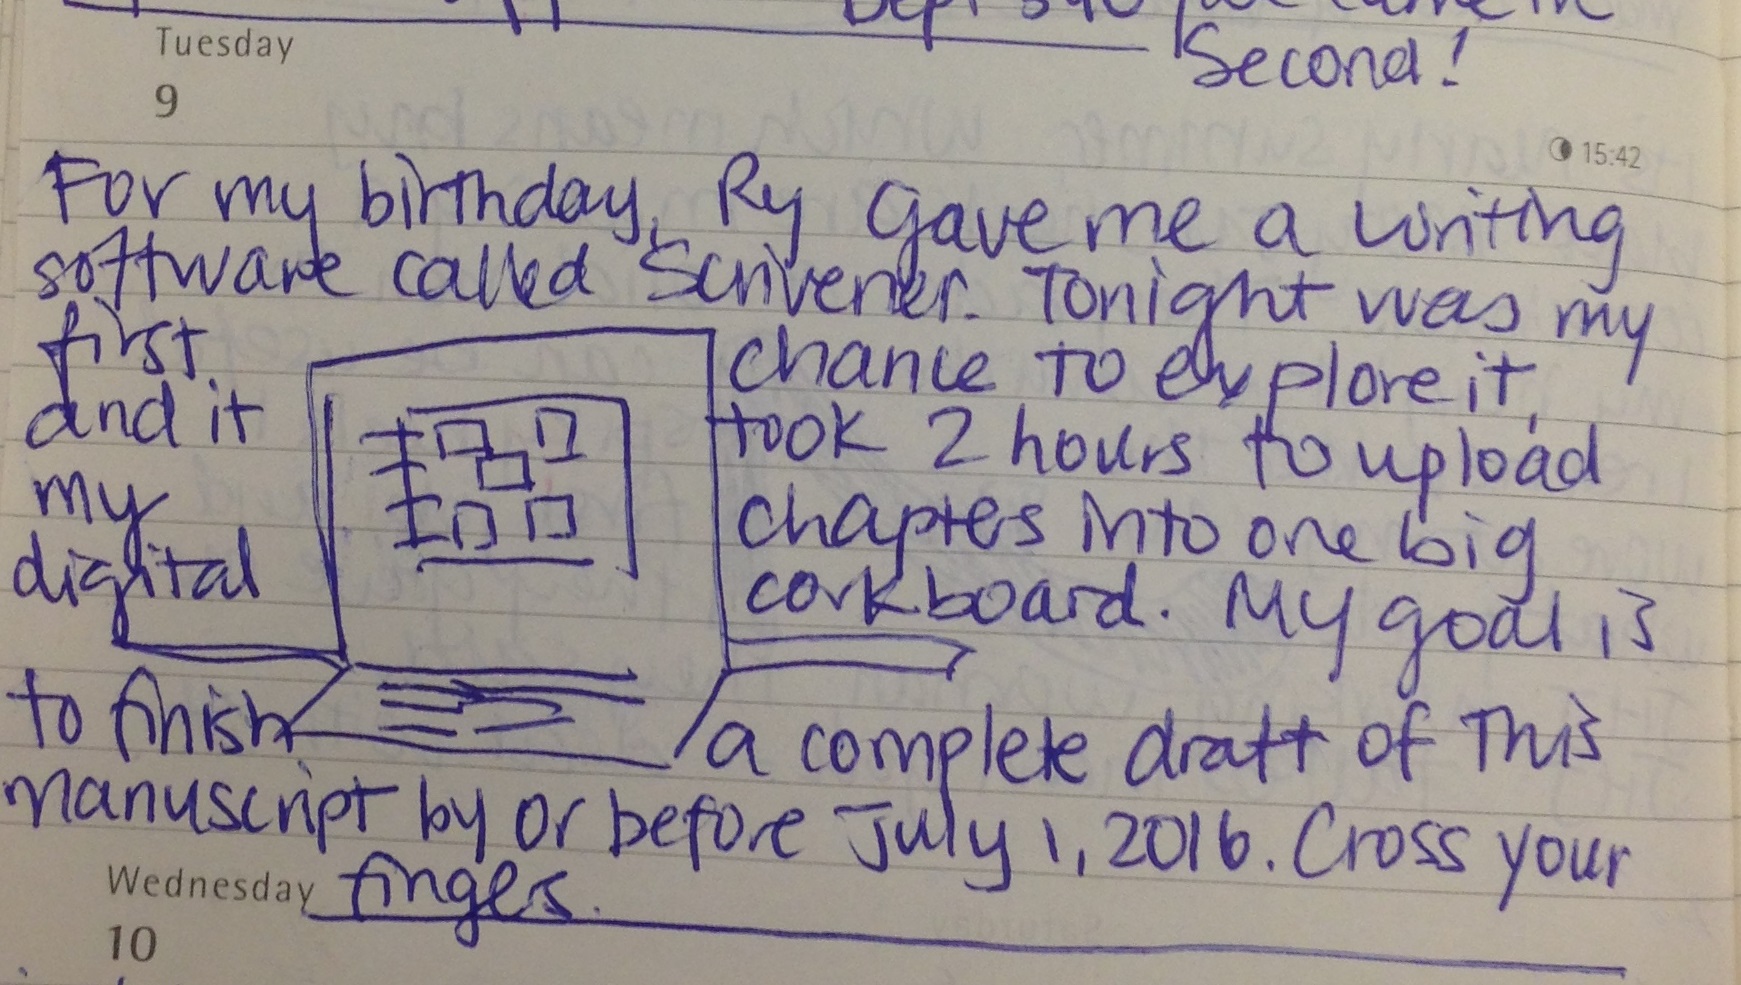 Second!
Tuesday
9
15:42
For my birthday, Ry gave me a writing
software called Scrivener. Tonight was my
first chance to explore it,
and it took 2 hours to upload
my chaptes into one big
digital corkboard. My goal is
to finish a complete draft of this
manuscript by or before July 1, 2016. Cross your
finges.
Wednesday
10